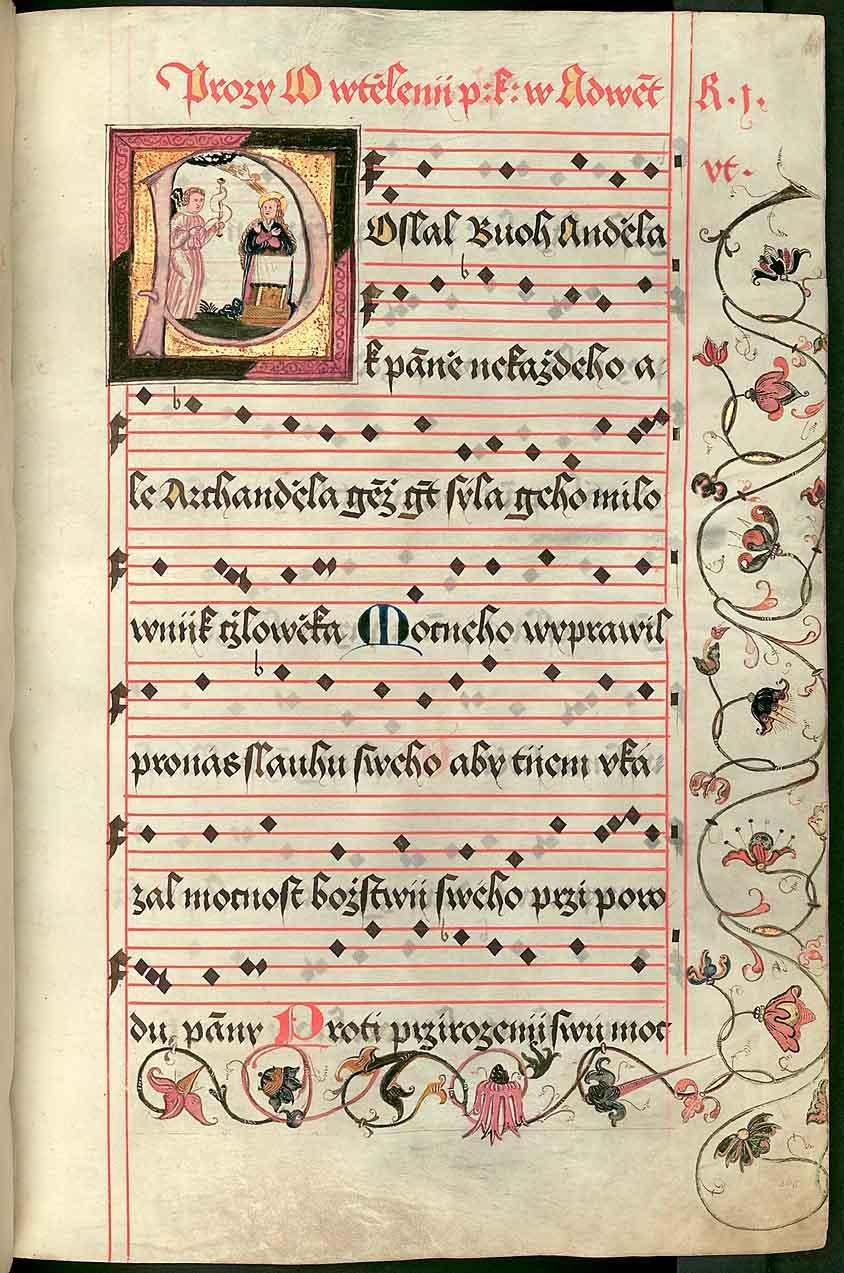 Prozy O wtělenij p: k: w Adwēt R. j.
vt.
POslal Buoh Anděla
k pāně nekaždeho a-
le Archanděla gēž gt̄ syla geho milo
wnijk cżlowěka Motneho wyprawil
pro nás slauhu sweho aby tijem vká-
zal mocnost božstwij swého przi poro
du, pāny Proti przirozenij swú moc